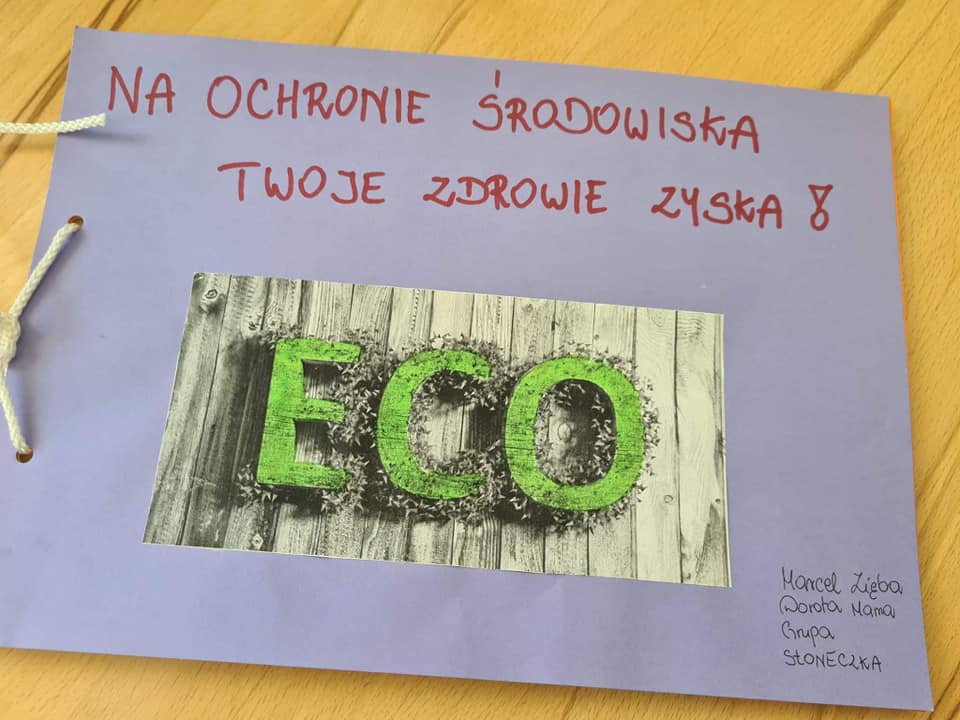 NA OCHRONIE ŚRODOWISKA
TWOJE ZDROWIE ZYSKA!
ECO
Marcel Zięba
Dorota Mama
Grupa
SŁONECZKA